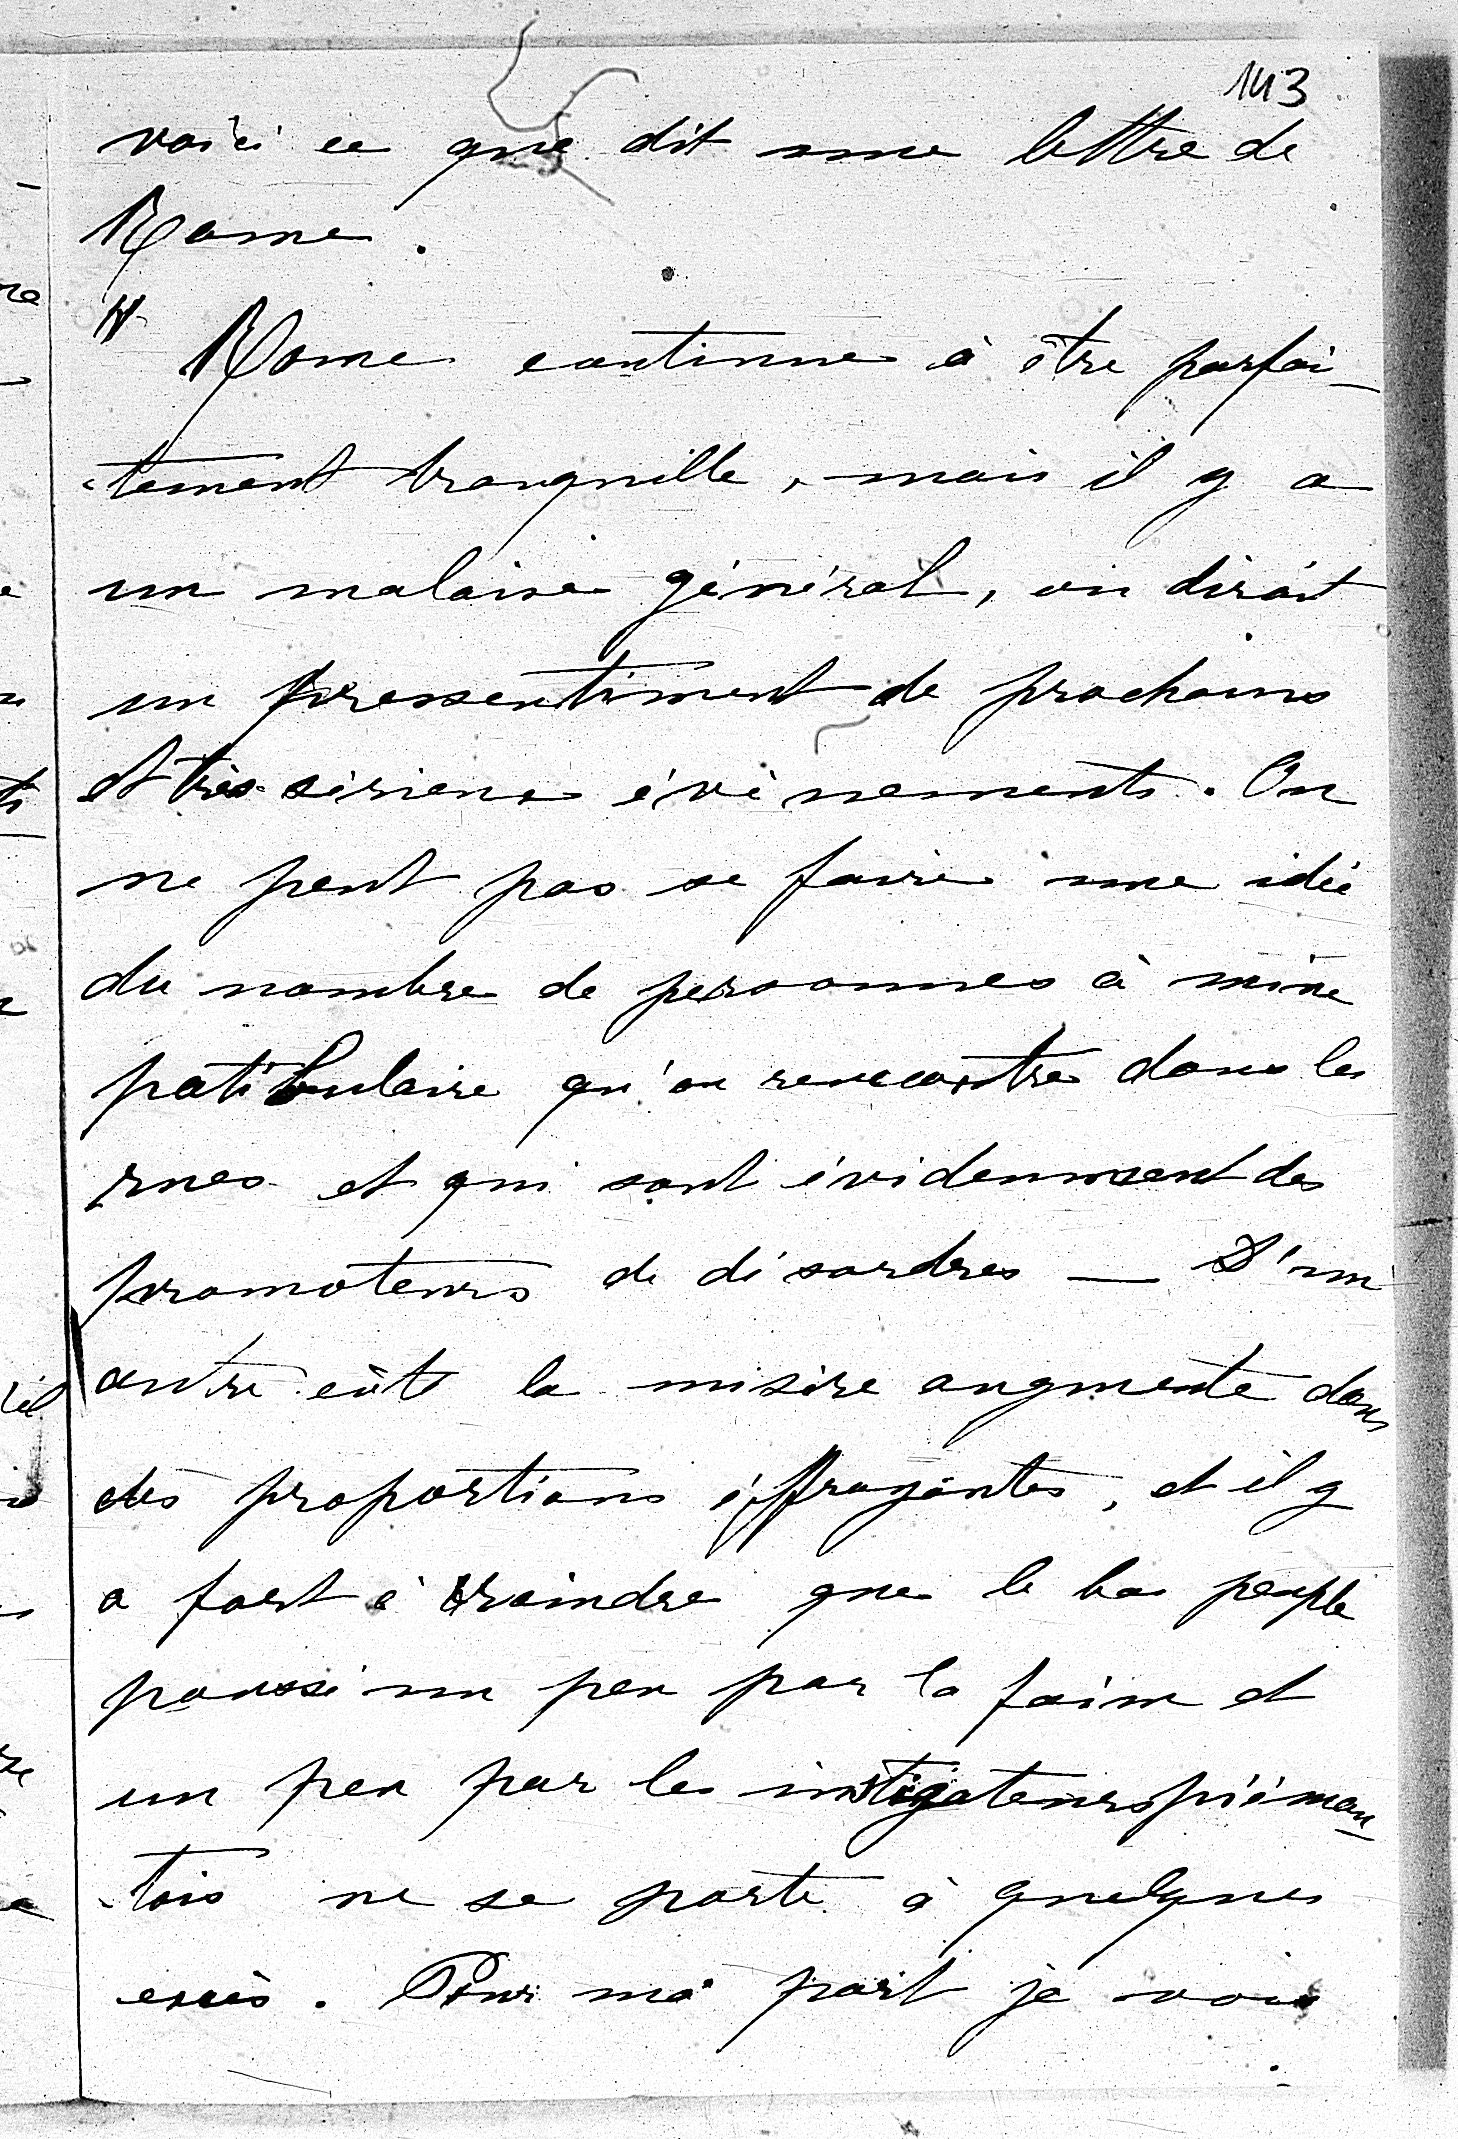 143
voici ce que dit une lettre de
Rome.
" Rome continue à être parfai-
-tement tranquille, mais il y a
un malaise général, on dirait
un pressentiment de prochains
et très sérieux évènements. On
ne peut pas se faire une idée
du nombre de personnes à mine
patibulaire qu'on rencontre dans les
rues et qui sont évidemment des
promoteurs de désordres — D'un
autre côté la misère augmente dans
des proportions éffrayantes, et il y
a fort à craindre que le bas peuple
poussé un peu par la faim et
un peu par les instigateurs piémon-
-tois ne se porte à quelques
excès. Pour ma part je vois